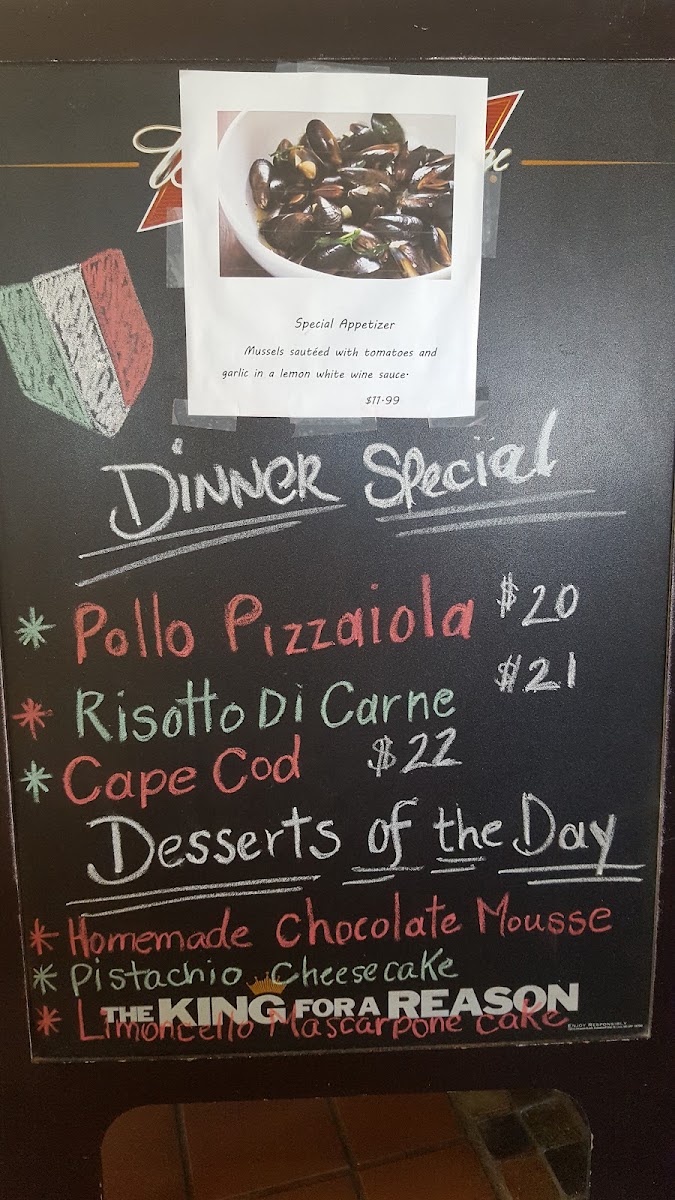 Special Appetizer
Mussels sautéed with tomatoes and
garlic in a lemon white wine sauce.
$11.99
Dinner Special
* Pollo Pizzaiola $20
* Risotto Di Carne $21
* Cape Cod $22
Desserts of the Day
* Homemade Chocolate Mousse
* Pistachio Cheesecake
THE KING FOR A REASON
* Limoncello Mascarpone Cake
ENJOY RESPONSIBLY